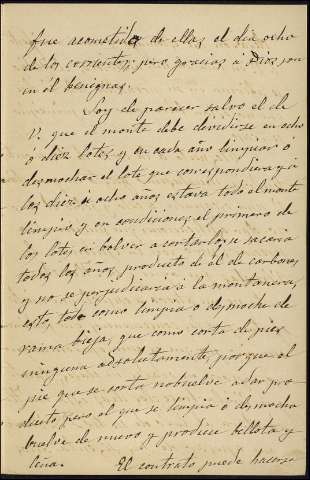 fue acometida de ellas el dia ocho
de los corrientes; pero gracias á Dios son
en él benignas.
Soy de parecer salvo el de
V. que el monte debe dividirse en ocho
o diez lotes y en cada año limpiar o
desmochar el lote que correspondiera y á
los diez u ocho años estava todo el monte
limpio y en condiciones el primero de
los lotes en bolver a cortarlo, se sacaria
todos los años producto de él de carbones
y no se perjudicara a la montanera,
esto, todo como limpia o desmoche de
rama bieja, que como corta de pies
ninguna absolutamente, porque el
pie que se corta nobuelve adar pro-
ducto pero el que se limpia o desmocha
buelve de nuevo y produce bellota y
leña. El contrato puede hacerse